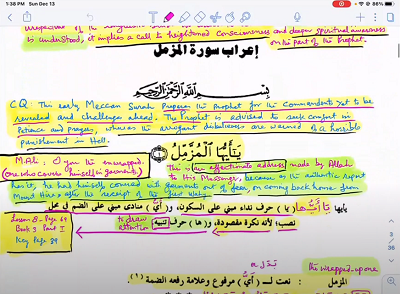 1:38 PM Sun Dec 13
86%
is understood, it implies a call to heightened consciousness and deeper spiritual awareness
on the part of the Prophet.
إعراب سورة المزمل
بِسْمِ اللَّهِ الرَّحْمَنِ الرَّحِيمِ
CQ: This early Meccan Surah prepares the Prophet for the Commandments yet to be
revealed and challenges ahead. The Prophet is advised to seek comfort in
Patience and prayer, whereas the arrogant disbelievers are warned of a horrible
punishment in Hell.
يَٰٓأَيُّهَا ٱلْمُزَّمِّلُ
M. Ali: O you the enwrapped,
(one who covers himself in garments)
This is an affectionate address made by Allah
to His Messenger, because as the authentic report
has it, he had himself covered with garments out of fear, on coming back home from
Mount Hira after the receipt of the first Wahy.
يأيها (يا) حرف نداء مبني على السكون، و(أيُّ) منادى مبني على الضم في محل
نصب؛ لأنه نكرة مقصودة، و(ها) حرف تنبيه
to draw
attention
Lesson 8 - Page 64
Book 3 Part I
Key Page 39
بَدَل
the wrapped-up one
المزمل: نعت لـ (أيُّ) مرفوع وعلامة رفعه الضمة (١)
3
36